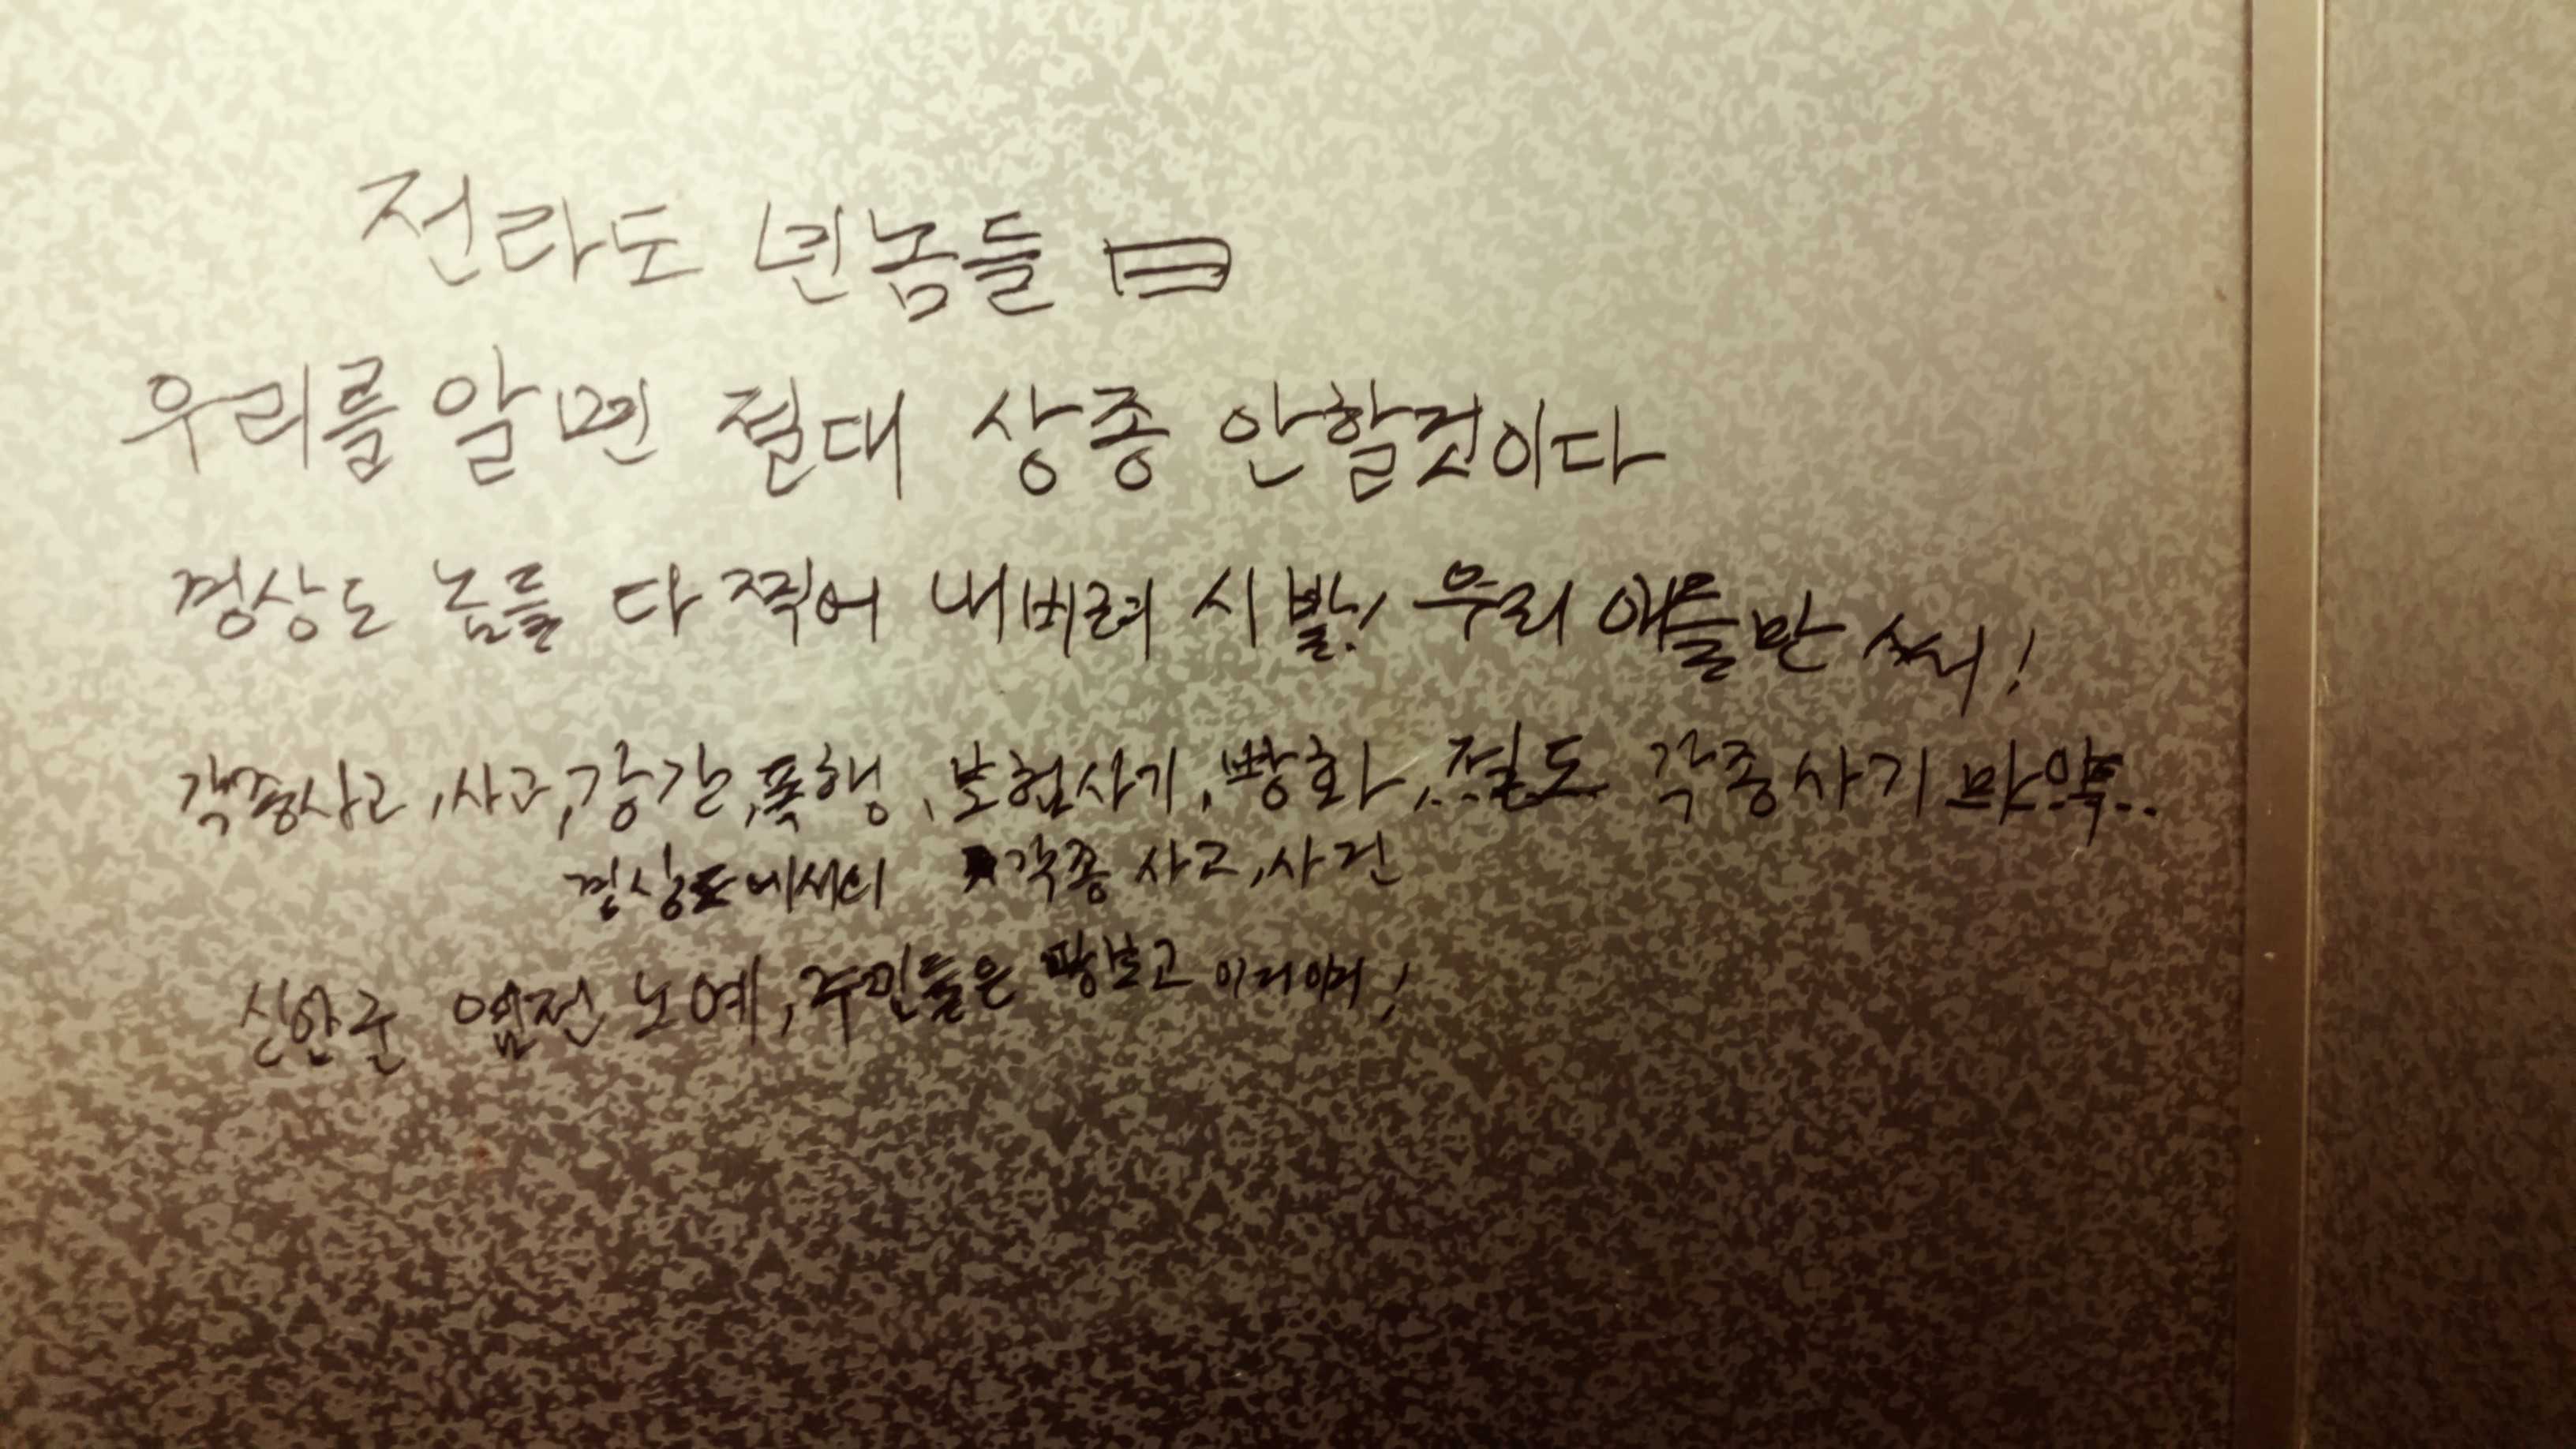 전라도 년놈들
우리를 알면 절대 상종 안할것이다
경상도 놈들 다 찍어 내버려 시발! 우리 애들만 써!
각종사고, 사고, 강간, 폭행, 보험사기, 빵화, 절도 각종사기 마약..
경상도에서 각종 사고, 사건
신안군 염전 노예, 주민들은 망보고